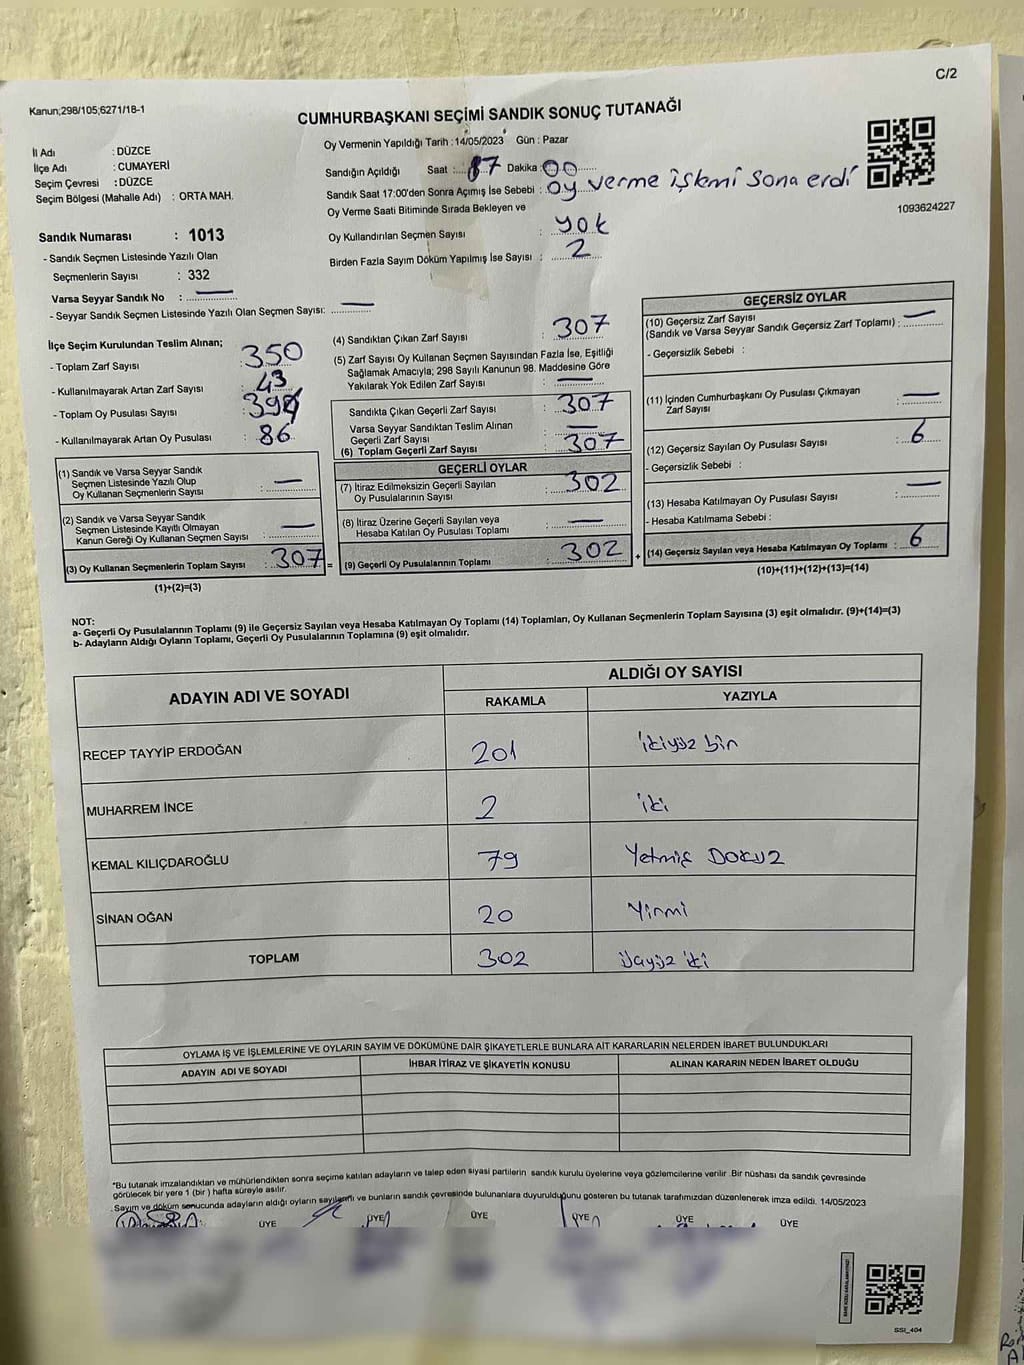 C/2
Kanun;298/105;6271/18-1
CUMHURBAŞKANI SEÇİMİ SANDIK SONUÇ TUTANAĞI
İl Adı : DÜZCE
İlçe Adı : CUMAYERİ
Seçim Çevresi : DÜZCE
Seçim Bölgesi (Mahalle Adı) : ORTA MAH.
Oy Vermenin Yapıldığı Tarih : 14/05/2023 Gün : Pazar
Sandığın Açıldığı Saat : 17 Dakika : 00
Sandık Saat 17:00'den Sonra Açımış İse Sebebi : oy verme işkmi sona erdi
Oy Verme Saati Bitiminde Sırada Bekleyen ve
Oy Kullandırılan Seçmen Sayısı : yok
Birden Fazla Sayım Döküm Yapılmış İse Sayısı : 2
1093624227
Sandık Numarası : 1013
- Sandık Seçmen Listesinde Yazılı Olan
Seçmenlerin Sayısı : 332
Varsa Seyyar Sandık No : —
- Seyyar Sandık Seçmen Listesinde Yazılı Olan Seçmen Sayısı: —
İlçe Seçim Kurulundan Teslim Alınan;
- Toplam Zarf Sayısı : 350
- Kullanılmayarak Artan Zarf Sayısı : 43
- Toplam Oy Pusulası Sayısı :
- Kullanılmayarak Artan Oy Pusulası : 86
(1) Sandık ve Varsa Seyyar Sandık
Seçmen Listesinde Yazılı Olup
Oy Kullanan Seçmenlerin Sayısı : —
(2) Sandık ve Varsa Seyyar Sandık
Seçmen Listesinde Kayıtlı Olmayan
Kanun Gereği Oy Kullanan Seçmen Sayısı : —
(3) Oy Kullanan Seçmenlerin Toplam Sayısı : 307
(1)+(2)=(3)
(4) Sandıktan Çıkan Zarf Sayısı : 307
(5) Zarf Sayısı Oy Kullanan Seçmen Sayısından Fazla İse, Eşitliği
Sağlamak Amacıyla; 298 Sayılı Kanunun 98. Maddesine Göre
Yakılarak Yok Edilen Zarf Sayısı : —
Sandıkta Çıkan Geçerli Zarf Sayısı : 307
Varsa Seyyar Sandıktan Teslim Alınan
Geçerli Zarf Sayısı : —
(6) Toplam Geçerli Zarf Sayısı : 307
GEÇERLİ OYLAR
(7) İtiraz Edilmeksizin Geçerli Sayılan
Oy Pusulalarının Sayısı : 302
(8) İtiraz Üzerine Geçerli Sayılan veya
Hesaba Katılan Oy Pusulası Toplamı : —
= (9) Geçerli Oy Pusulalarının Toplamı : 302
GEÇERSİZ OYLAR
(10) Geçersiz Zarf Sayısı
(Sandık ve Varsa Seyyar Sandık Geçersiz Zarf Toplamı) : —
- Geçersizlik Sebebi :
(11) İçinden Cumhurbaşkanı Oy Pusulası Çıkmayan
Zarf Sayısı : —
(12) Geçersiz Sayılan Oy Pusulası Sayısı : 6
- Geçersizlik Sebebi :
(13) Hesaba Katılmayan Oy Pusulası Sayısı : —
- Hesaba Katılmama Sebebi :
+ (14) Geçersiz Sayılan veya Hesaba Katılmayan Oy Toplamı : 6
(10)+(11)+(12)+(13)=(14)
NOT:
a- Geçerli Oy Pusulalarının Toplamı (9) ile Geçersiz Sayılan veya Hesaba Katılmayan Oy Toplamı (14) Toplamları, Oy Kullanan Seçmenlerin Toplam Sayısına (3) eşit olmalıdır. (9)+(14)=(3)
b- Adayların Aldığı Oyların Toplamı, Geçerli Oy Pusulalarının Toplamına (9) eşit olmalıdır.
ADAYIN ADI VE SOYADI
ALDIĞI OY SAYISI
RAKAMLA YAZIYLA
RECEP TAYYİP ERDOĞAN 201 ikiyüz bin
MUHARREM İNCE 2 iki
KEMAL KILIÇDAROĞLU 79 Yetmiş DOKUZ
SİNAN OĞAN 20 Yirmi
TOPLAM 302 üçyüz iki
OYLAMA İŞ VE İŞLEMLERİNE VE OYLARIN SAYIM VE DÖKÜMÜNE DAİR ŞİKAYETLERLE BUNLARA AİT KARARLARIN NELERDEN İBARET BULUNDUKLARI
ADAYIN ADI VE SOYADI İHBAR İTİRAZ VE ŞİKAYETİN KONUSU ALINAN KARARIN NEDEN İBARET OLDUĞU
*Bu tutanak imzalandıktan ve mühürlendikten sonra seçime katılan adayların ve talep eden siyasi partilerin sandık kurulu üyelerine veya gözlemcilerine verilir .Bir nüshası da sandık çevresinde
görülecek bir yere 1 (bir) hafta süreyle asılır.
. Sayım ve döküm sonucunda adayların aldığı oyların sayılarını ve bunların sandık çevresinde bulunanlara duyurulduğunu gösteren bu tutanak tarafımızdan düzenlenerek imza edildi. 14/05/2023
ÜYE ÜYE ÜYE ÜYE ÜYE ÜYE
SSI_404